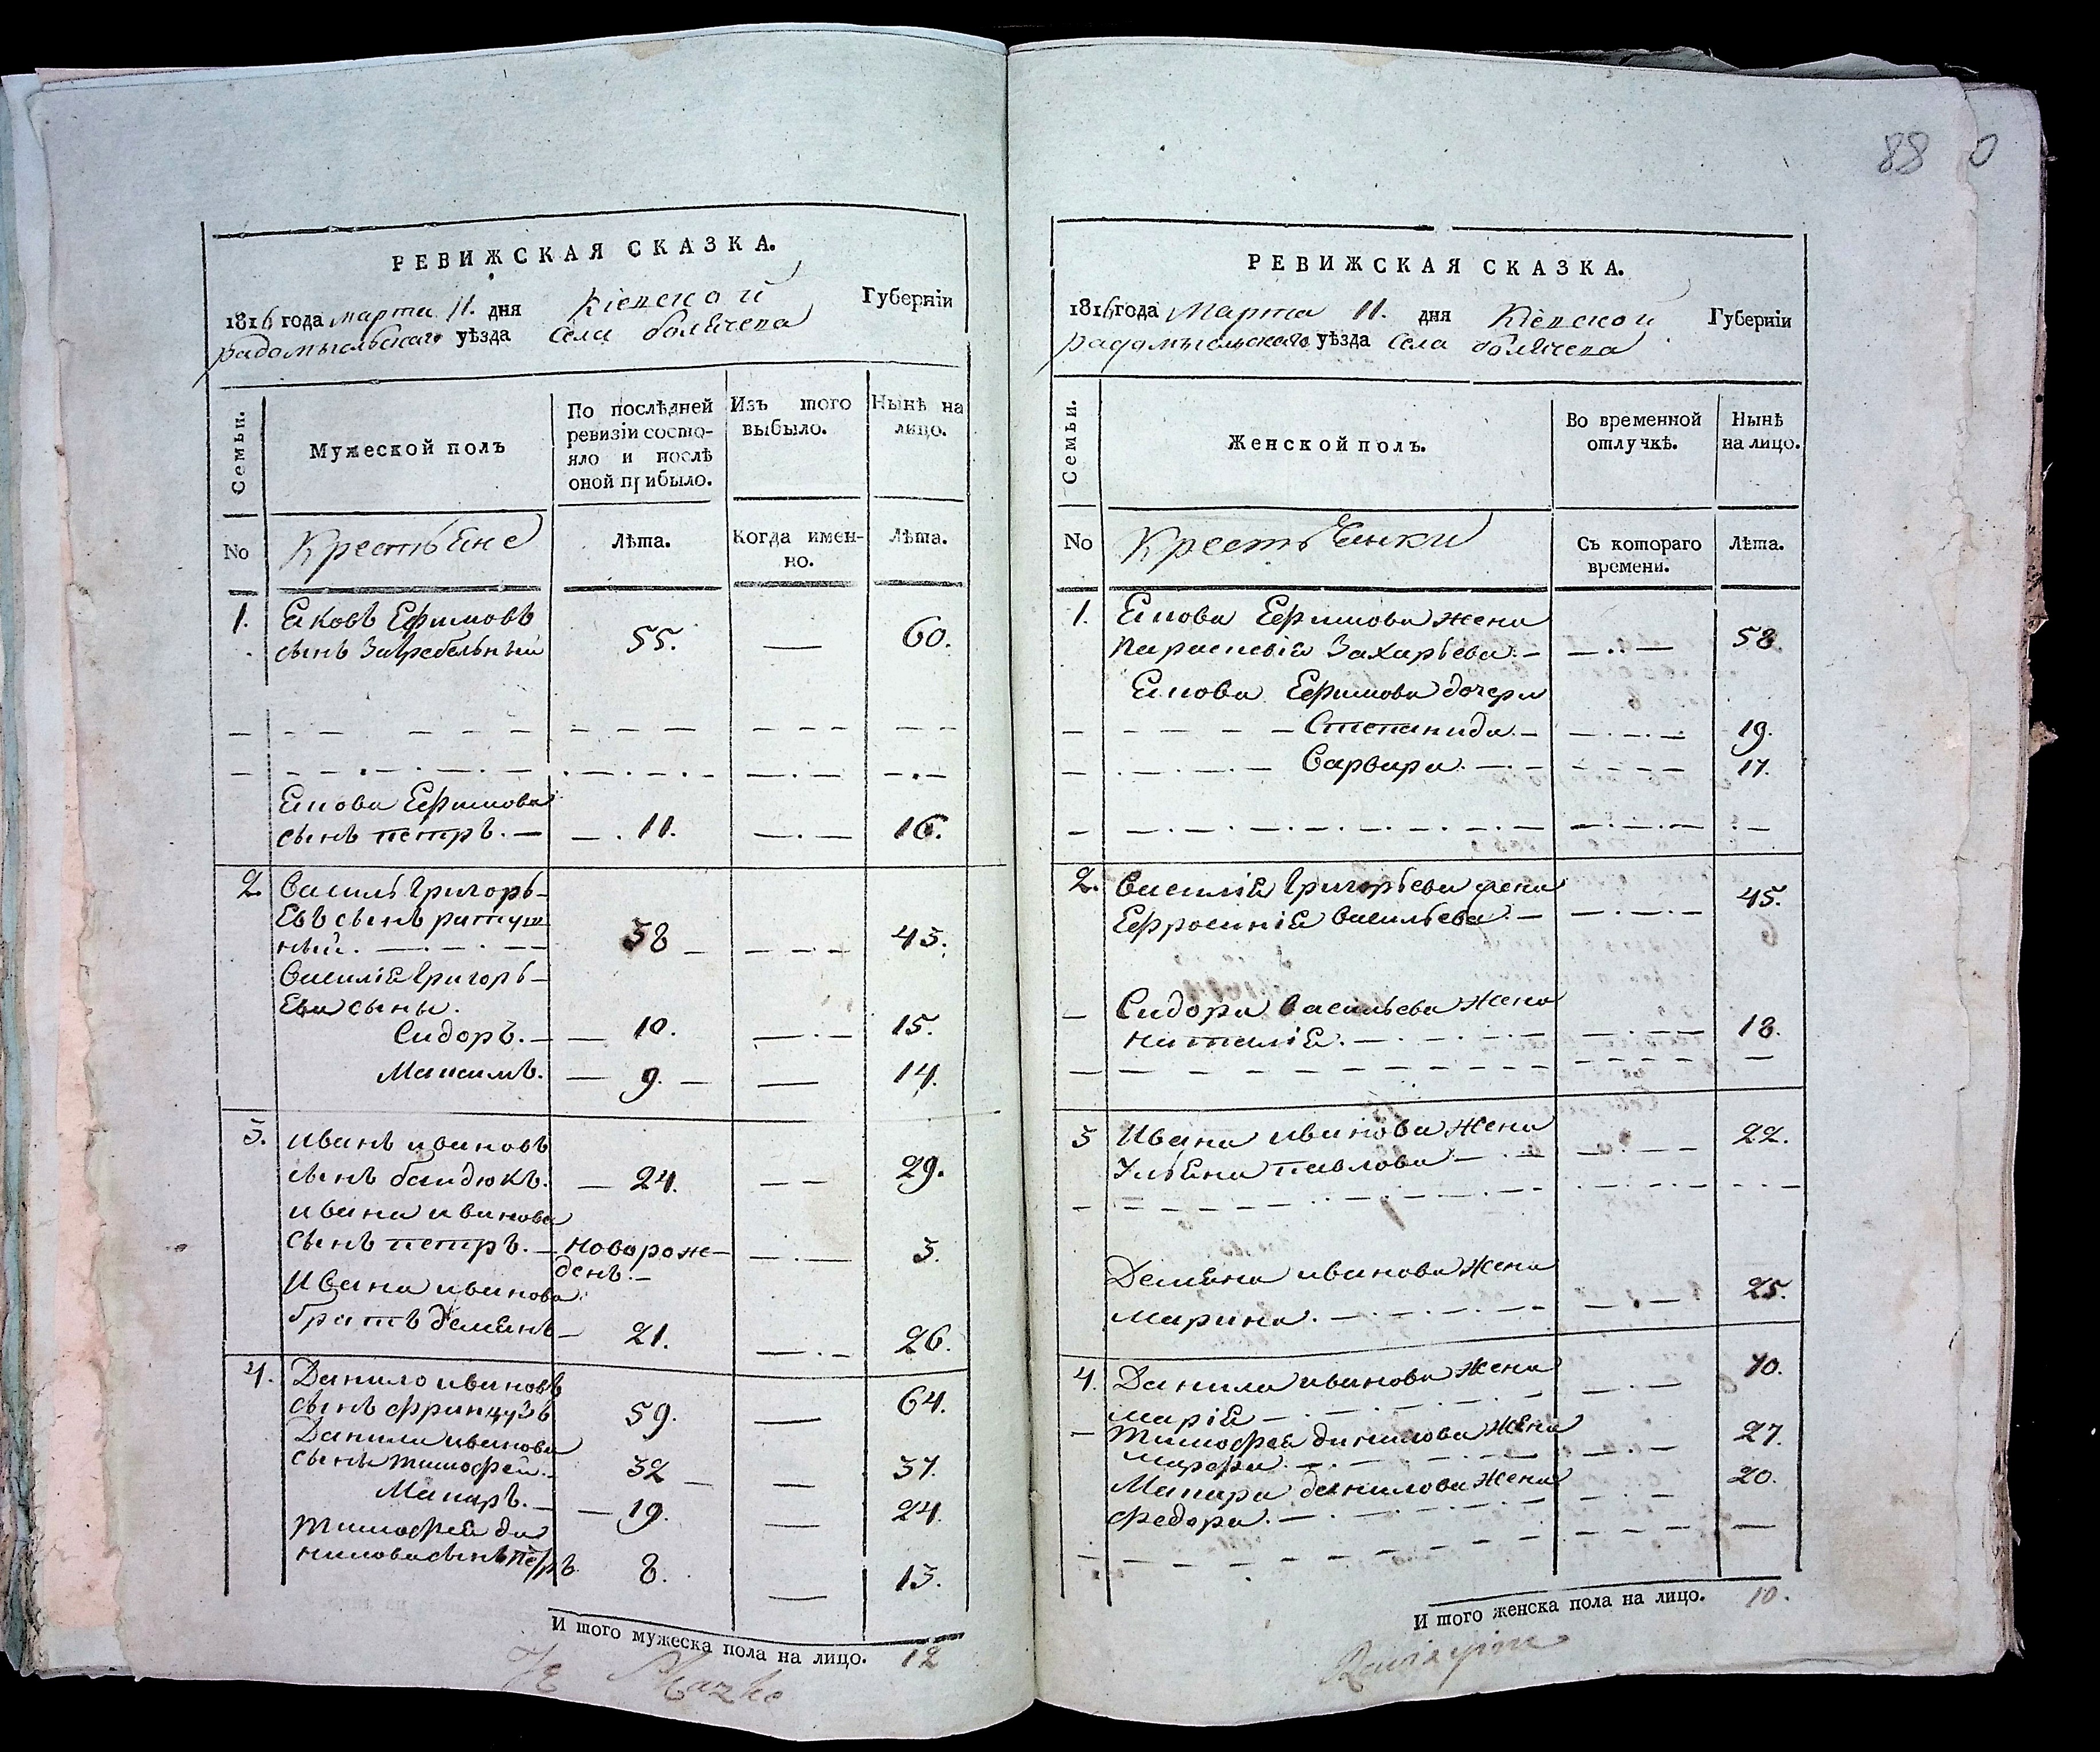 88
РЕВИЖСКАЯ СКАЗКА.
1816 года марта 11. дня Кіевской Губерніи
радомысльскаго уѣзда Села болячева
Семьи.
Мужеской полъ
По послѣдней ревизіи состо-
яло и послѣ
оной прибыло.
Изъ того
выбыло.
Нынѣ на
лицо.
No
Крестьяне
Лѣта.
Когда имен-
но.
Лѣта.
1. Яковъ Ефимовъ
сынъ Загребельный 55. — 60.
Якова Ефимова
сынъ петръ. — 11. — 16.
2. Василь Григорь-
евъ сынъ ратуш
ный. — 38 — 43.
Василія Григорь-
ева сыны.
Сидоръ. — 10. — 15.
Максимъ. — 9. — 14.
3. Иванъ ивановъ
сынъ бандюкъ. — 24. — 29.
ивана иванова
сынъ петръ. — новорож-
денъ. — 3.
Ивана иванова
братъ демянъ — 21. — 26.
4. Данило ивановъ
сынъ французъ 59. — 64.
Данила иванова
сыны тимофей. 32 — 37.
Макаръ. — 19. — 24.
тимофея да
нилова сынъ петръ 8. — 13.
И того мужеска пола на лицо. 12
РЕВИЖСКАЯ СКАЗКА.
1816 года Марта 11. дня Кіевской Губерніи
радомысльскаго уѣзда Села болячева
Семьи.
Женской полъ.
Во временной
отлучкѣ.
Нынѣ
на лицо.
No
Крестьянки
Съ котораго
времени.
Лѣта.
1. Якова Ефимова жена
параскевія Захарьева. — 58
Якова Ефимова дочери
Степанида. — 19.
Варвара. — 17.
2. Василія Григорьева жена
Ефросинія Васильева. — 45.
Сидора Васильева жена
наталія. — 18.
3 Ивана иванова жена 22.
Ульяна павлова —
Демяна иванова жена
марина. — 25.
4. Данила иванова жена 40.
марія —
тимофея данилова жена 27.
марфа. —
Макара данилова жена 20.
федора. —
И того женска пола на лицо. 10.